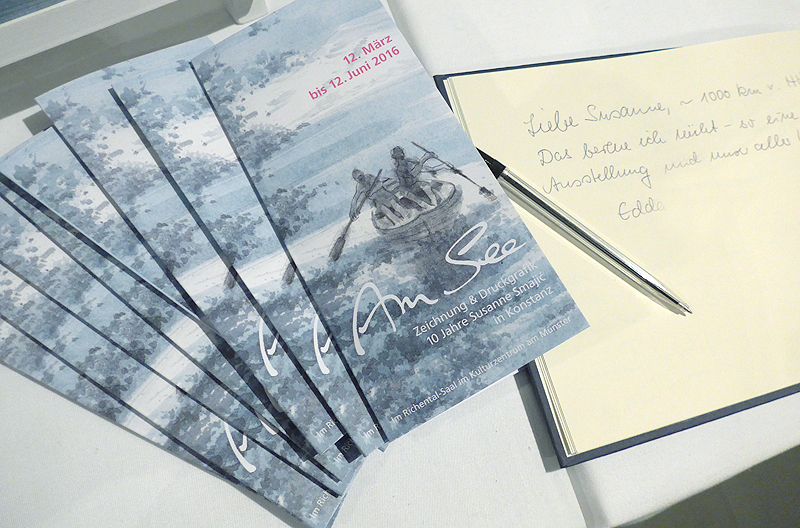 12. März
bis 12. Juni 2016
Am See
Zeichnung & Druckgrafik
10 Jahre Susanne Smajić
in Konstanz
Im Richental-Saal im Kulturzentrum am Münster
Im Richental
Im Rich
Liebe Susanne, ~ 1000 km v.
Das
ich nicht - so eine
Ausstellung und
aller
Edda